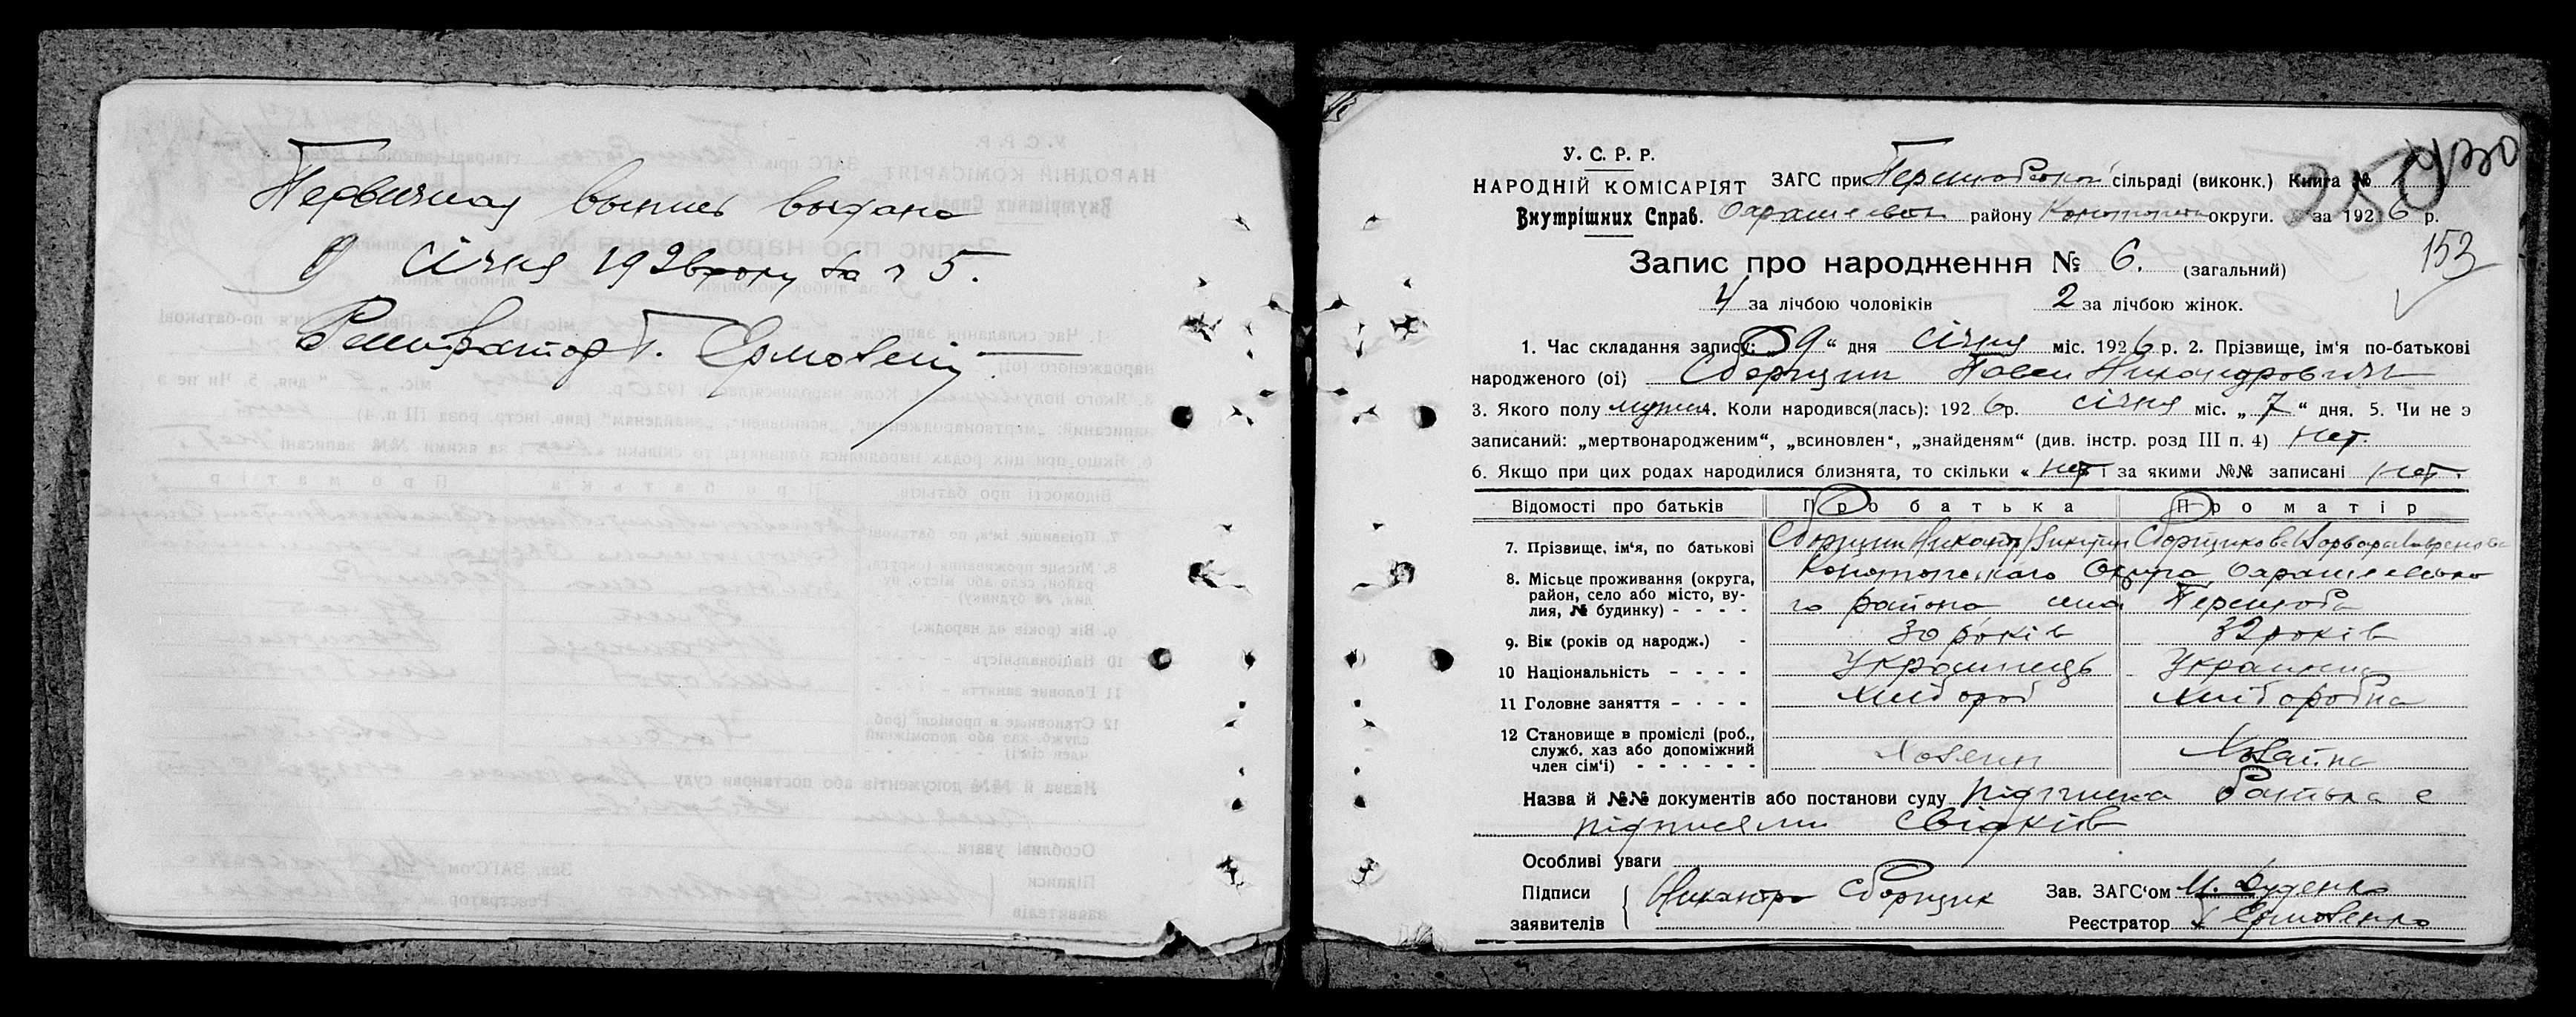 Первичная выпись выдана
9 січня 1926 року за № 5.
Реєстратор Г. Ермоленко
У. С. Р. Р.
НАРОДНІЙ КОМІСАРІЯТ
Внутрішних Справ.
ЗАГС при сільраді (виконк.) Книга №
району округи. за 1926 р.
153
Запис про народження № 6. (загальний)
4 за лічбою чоловіків 2 за лічбою жінок.
1. Час складання запису: „9“ дня січня міс. 1926 р. 2. Прізвище, ім'я по-батькові
народженого (ої) Сборщик Павел Никандрович
3. Якого полу мужчи. 4. Коли народився(лась): 1926 р. січня міс. „7“ дня. 5. Чи не э
записаний: „мертвонародженим“, „всиновлен“, „знайденям“ (див. інстр. розд III п. 4) Нет.
6. Якщо при цих родах народилися близнята, то скільки « нет і за якими №№ записані нет.
Відомості про батьків Про батька Про матір
7. Прізвище, ім'я, по батькові Сборщик Никандр Сборщикова Варвара
8. Місьце проживання (округа, Конотопскаго Округа
район, село або місто, ву-
лия, № будинку) - - - - го района села
9. Вік (років од народж.) - 30 років 32 років
10 Національність - - - - Українець Украинка
11 Головне заняття - - - - хлібороб хліборобка
12 Становище в проміслі (роб.,
служб. хаз або допоміжний
член сім'ї) - - - - - - Хозяин Хозяйка
Назва й №№ документів або постанови суду підписка батька с
підписями свідків
Особливі уваги
Підписи
заявителів Никандр Сборщик
Зав. ЗАГС'ом И. Дуденко
Реєстратор Ермоленко